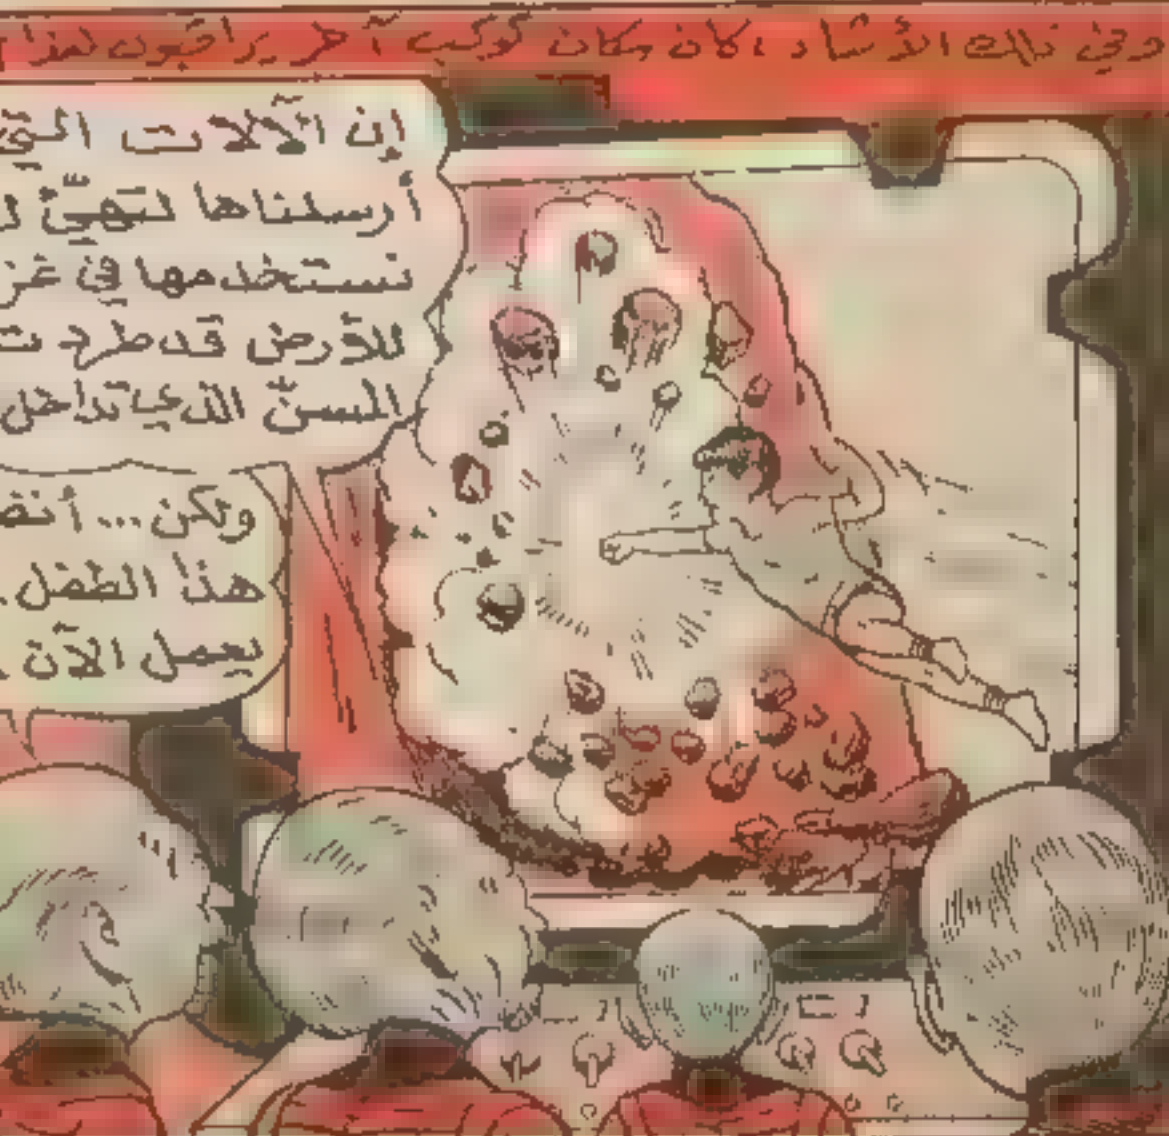 وفي ذلك الأثناء، كان سكان كوكب آخر يراقبون
إن الآلات التي
أرسلناها لتهيّئ
نستخدمها في
للأرض قد طردت
المسنّ الذي
ولكن...
هذا الطفل
يعمل الآن